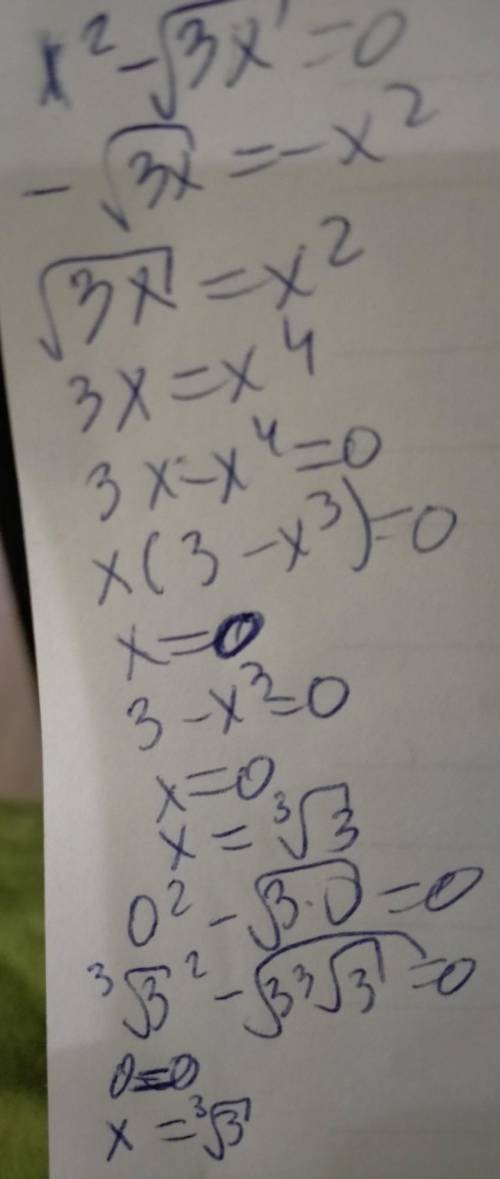 x² - √(3x) = 0
- √(3x) = -x²
√(3x) = x²
3x = x⁴
3x - x⁴ = 0
x(3 - x³) = 0
x = 0
3 - x³ = 0
x = 0
x = ³√3
0² - √(3·0) = 0
³√3² - √(3³√3) = 0
0 = 0
x = ³√3